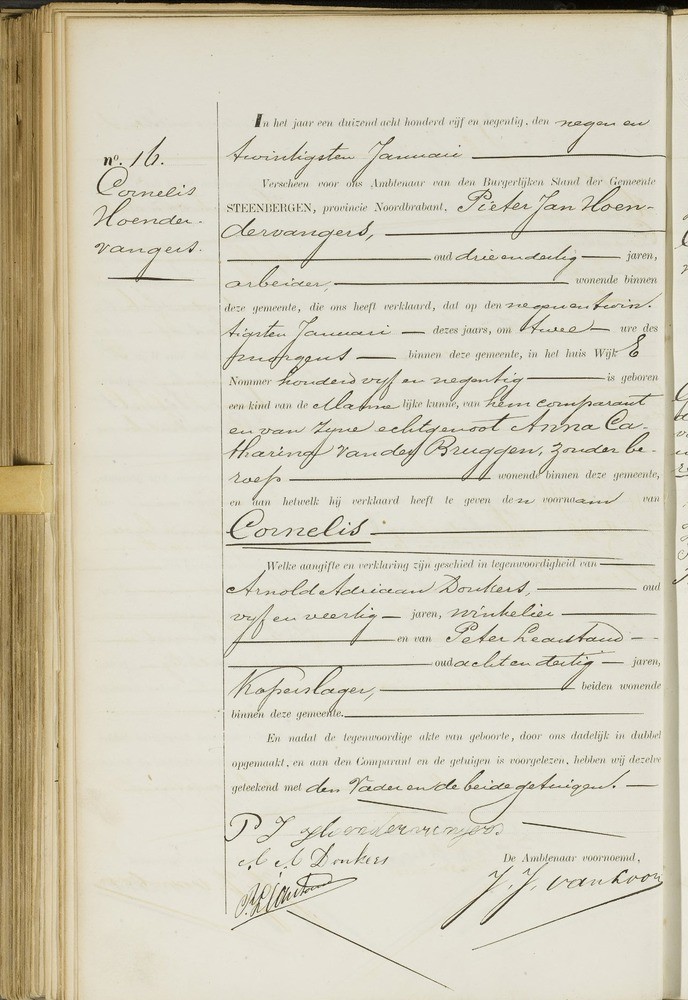 nº. 16.
Cornelis
Hoender-
vangers.
In het jaar een duizend acht honderd vijf en negentig, den negen en
twintigsten Januari
Verscheen voor ons Ambtenaar van den Burgerlijken Stand der Gemeente
STEENBERGEN, provincie Noordbrabant, Pieter Jan Hoen-
dervangers,
oud drie en dertig jaren,
arbeider, wonende binnen
deze gemeente, die ons heeft verklaard, dat op den negen en twin-
tigsten Januari dezes jaars, om twee ure des
morgens binnen deze gemeente, in het huis Wijk E
Nommer honderd vijf en negentig is geboren
een kind van de Manne lijke kunne, van hem comparant
en van zijne echtgenoot Anna Ca-
tharina van der Bruggen, zonder be-
roep wonende binnen deze gemeente,
en aan hetwelk hij verklaard heeft te geven den voornaam van
Cornelis
Welke aangifte en verklaring zijn geschied in tegenwoordigheid van
Arnold Adriaan Donkers, oud
vijf en veertig jaren, winkelier
en van Peter
oud acht en dertig jaren,
Koperslager, beiden wonende
binnen deze gemeente.
En nadat de tegenwoordige akte van geboorte, door ons dadelijk in dubbel
opgemaakt, en aan den Comparant en de getuigen is voorgelezen, hebben wij dezelve
geteekend met den Vader en de beide getuigen.
P J Hoendervangers
A A Donkers
De Ambtenaar voornoemd,
J. J. van Loon